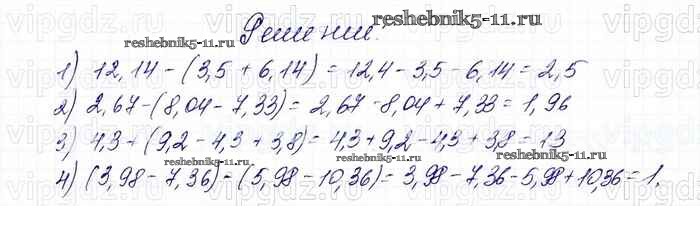 vipgdz.com vipgdz.com vipgdz.com
Решение.
reshebnik5-11.ru
reshebnik5-11.ru
1) 12,14 - (3,5 + 6,14) = 12,4 - 3,5 - 6,14 = 2,5
2) 2,67 - (8,04 - 7,33) = 2,67 - 8,04 + 7,33 = 1,96
3) 4,3 + (9,2 - 4,3 + 3,8) = 4,3 + 9,2 - 4,3 + 3,8 = 13
reshebnik5-11.ru
reshebnik5-11.ru
4) (3,98 - 7,36) - (5,98 - 10,36) = 3,98 - 7,36 - 5,98 + 10,36 = 1,